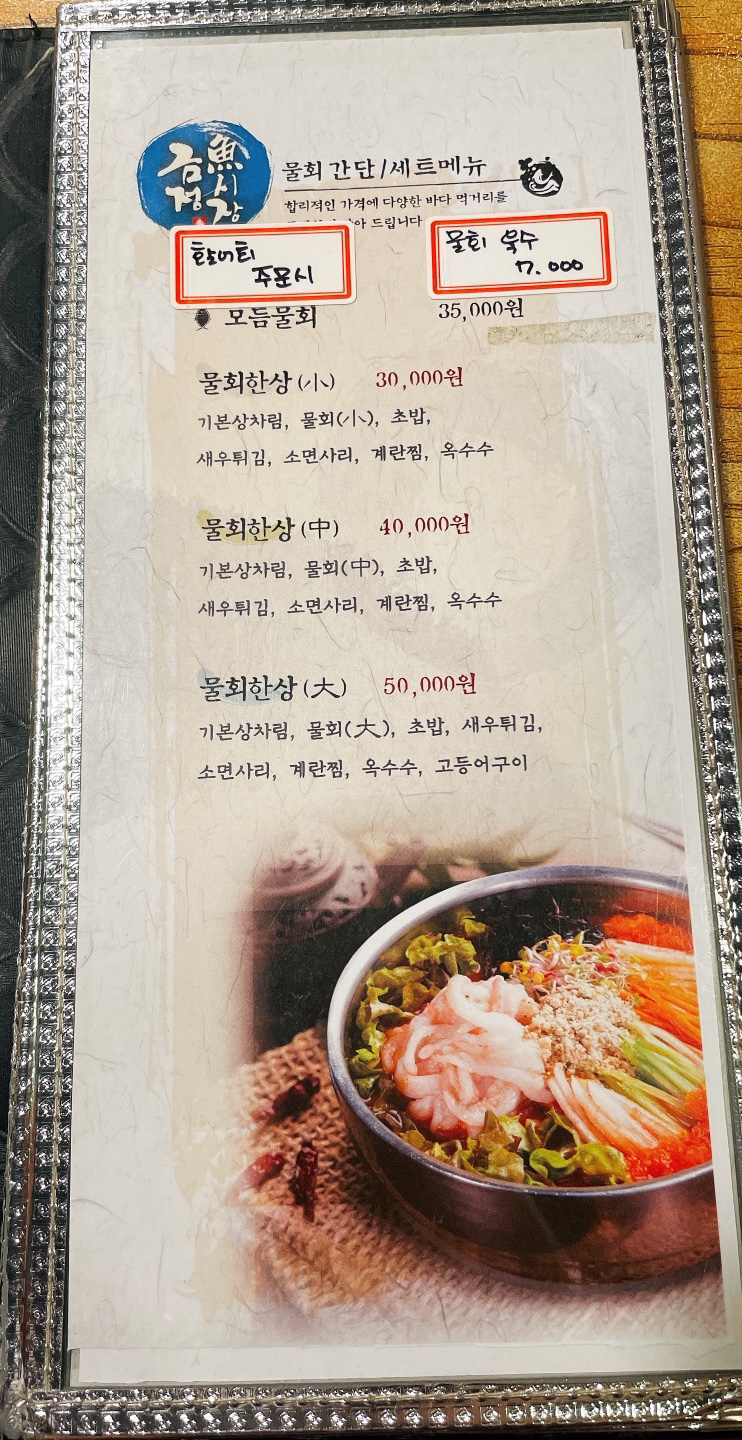 금정
魚시장
물회 간단/세트메뉴
합리적인 가격에 다양한 바다 먹거리를
드립니다
주문시
물회 육수
7.000
모듬물회 35,000원
물회한상(小) 30,000원
기본상차림, 물회(小), 초밥,
새우튀김, 소면사리, 계란찜, 옥수수
물회한상(中) 40,000원
기본상차림, 물회(中), 초밥,
새우튀김, 소면사리, 계란찜, 옥수수
물회한상(大) 50,000원
기본상차림, 물회(大), 초밥, 새우튀김,
소면사리, 계란찜, 옥수수, 고등어구이